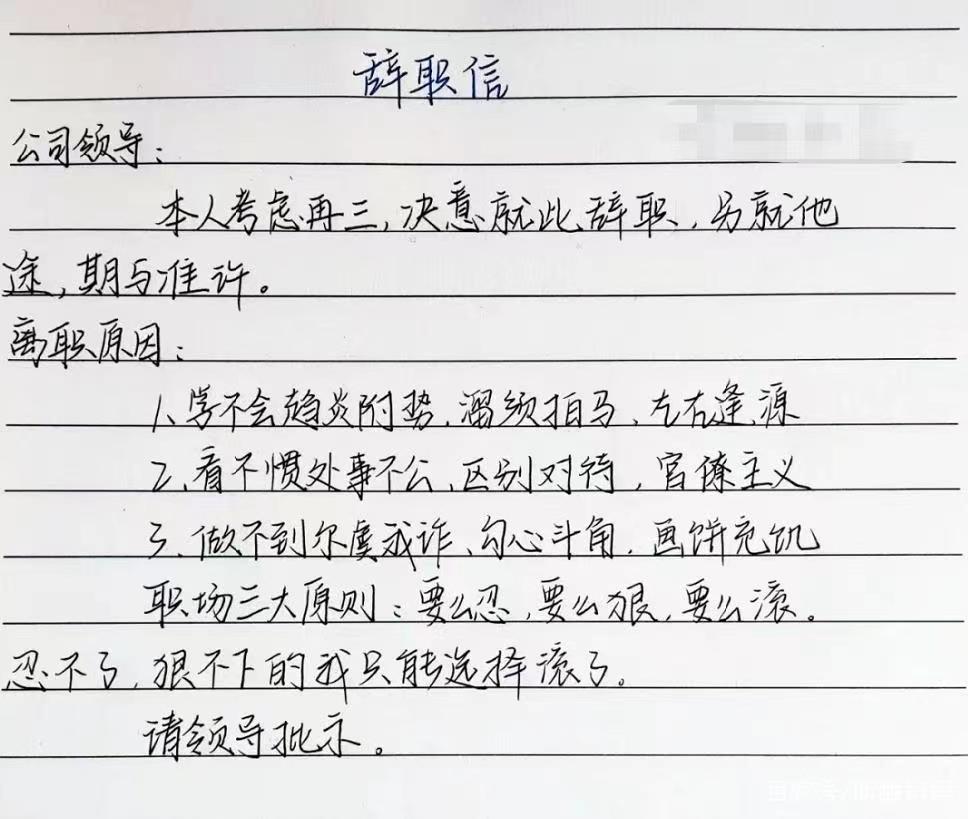 辞职信
公司领导：
本人考虑再三，决意就此辞职，另就他
途，期与准许。
离职原因：
1、学不会趋炎附势、溜须拍马、左右逢源
2、看不惯处事不公、区别对待，官僚主义
3、做不到尔虞我诈、勾心斗角，画饼充饥
职场三大原则：要么忍，要么狠，要么滚。
忍不了，狠不下的我只能选择滚了。
请领导批示。